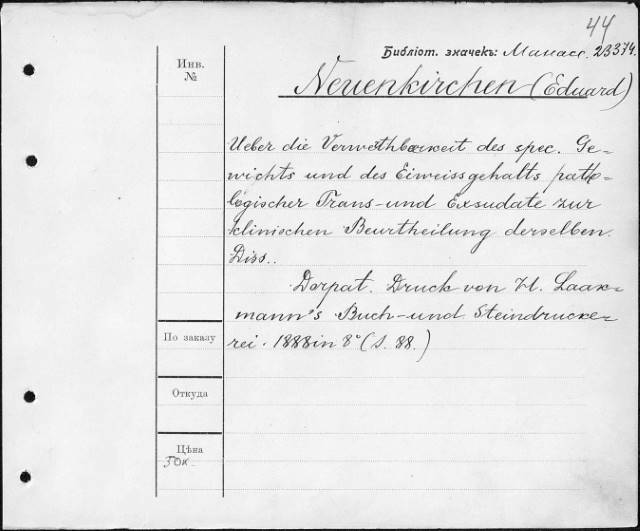 44
Библіот. значекъ: Манасс. 23374.
Инв.
№
Neuenkirchen (Eduard)
Ueber die Verwerthbarkeit des spec. Ge-
wichts und des Eiweissgehalts patho-
logischer Trans- und Exsudate zur
klinischen Beurtheilung derselben.
Diss..
Dorpat. Druck von H. Laak-
mann's Buch- und Steindrucke-
rei. 1888 in 8° (S. 88.)
По заказу
Откуда
Цѣна
50к.